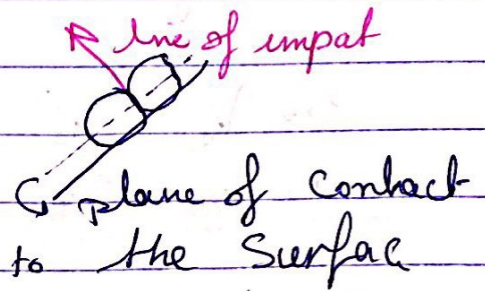 line of impat
plane of Contact
to the Surfac